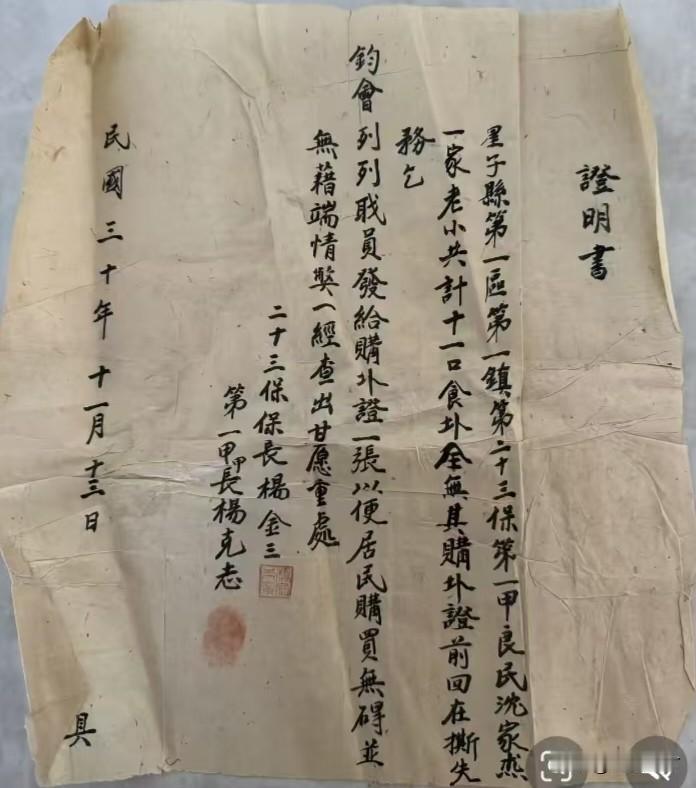 證明書
星子縣第一區第一鎮第二十三保第一甲良民沈家杰
一家老小共計十一口食圤全無其購圤證前回在撕失
務乞
鈞會列列職員發給購圤證一張以便居民購買無碍並
無藉端情獘一經查出甘愿重處
二十三保保長楊金三
第一甲甲長楊克志
民國三十年十一月十三日
具